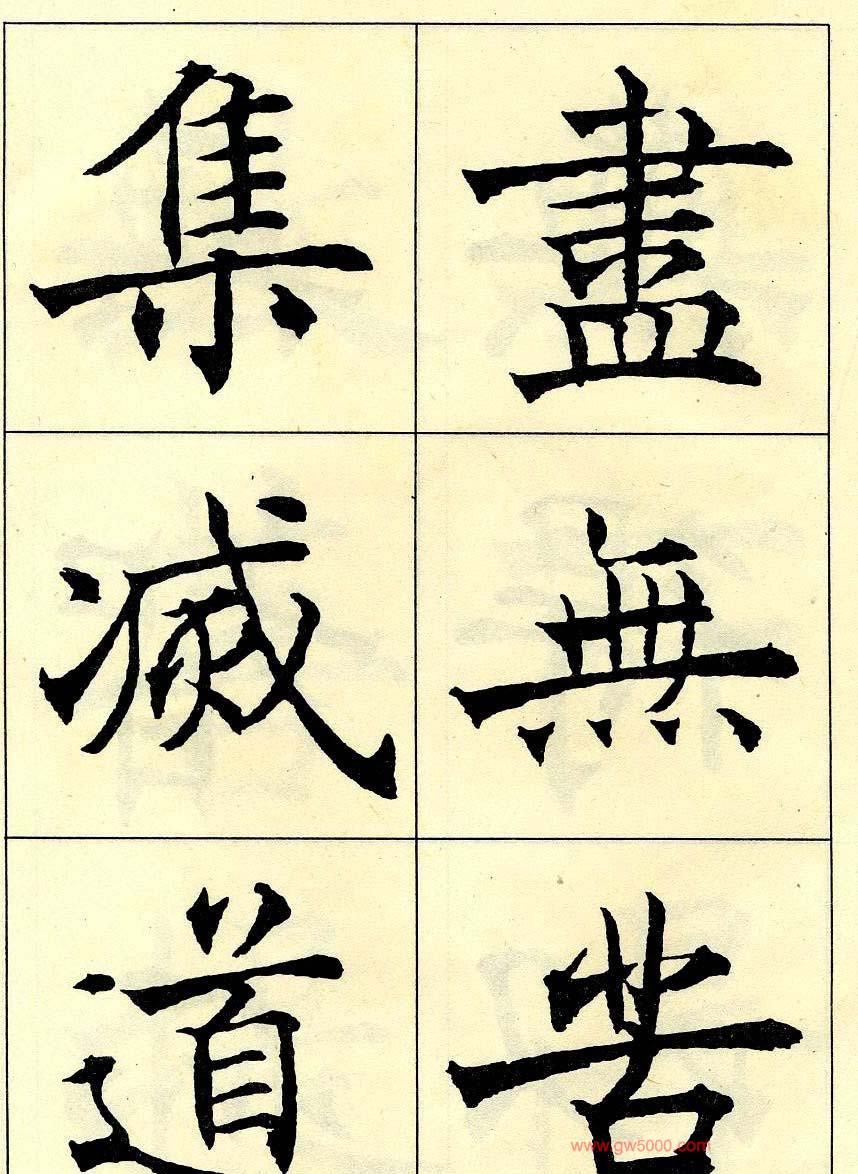 盡無苦
集滅道
www.gw5000.com